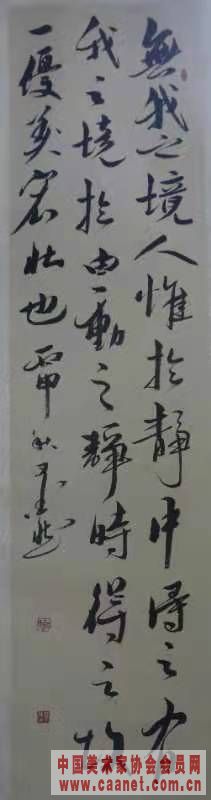 無我之境人惟於靜中得之有
我之境於由動之靜時得之故
一優美宏壯也 丙申秋
中国美术家协会会员网
www.caanet.com.cn